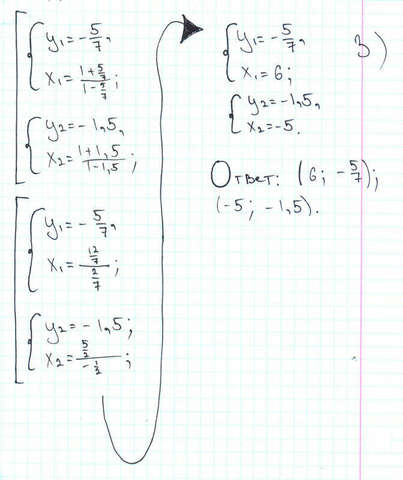 y₁ = -5/7,
x₁ = (1+5/7)/(1-5/7);
y₂ = -1,5,
x₂ = (1+1,5)/(1-1,5);
y₁ = -5/7,
x₁ = (12/7)/(2/7);
y₂ = -1,5;
x₂ = (5/2)/(-1/2);
y₁ = -5/7, 3)
x₁ = 6;
y₂ = -1,5,
x₂ = -5.
Ответ: (6; -5/7);
(-5; -1,5).